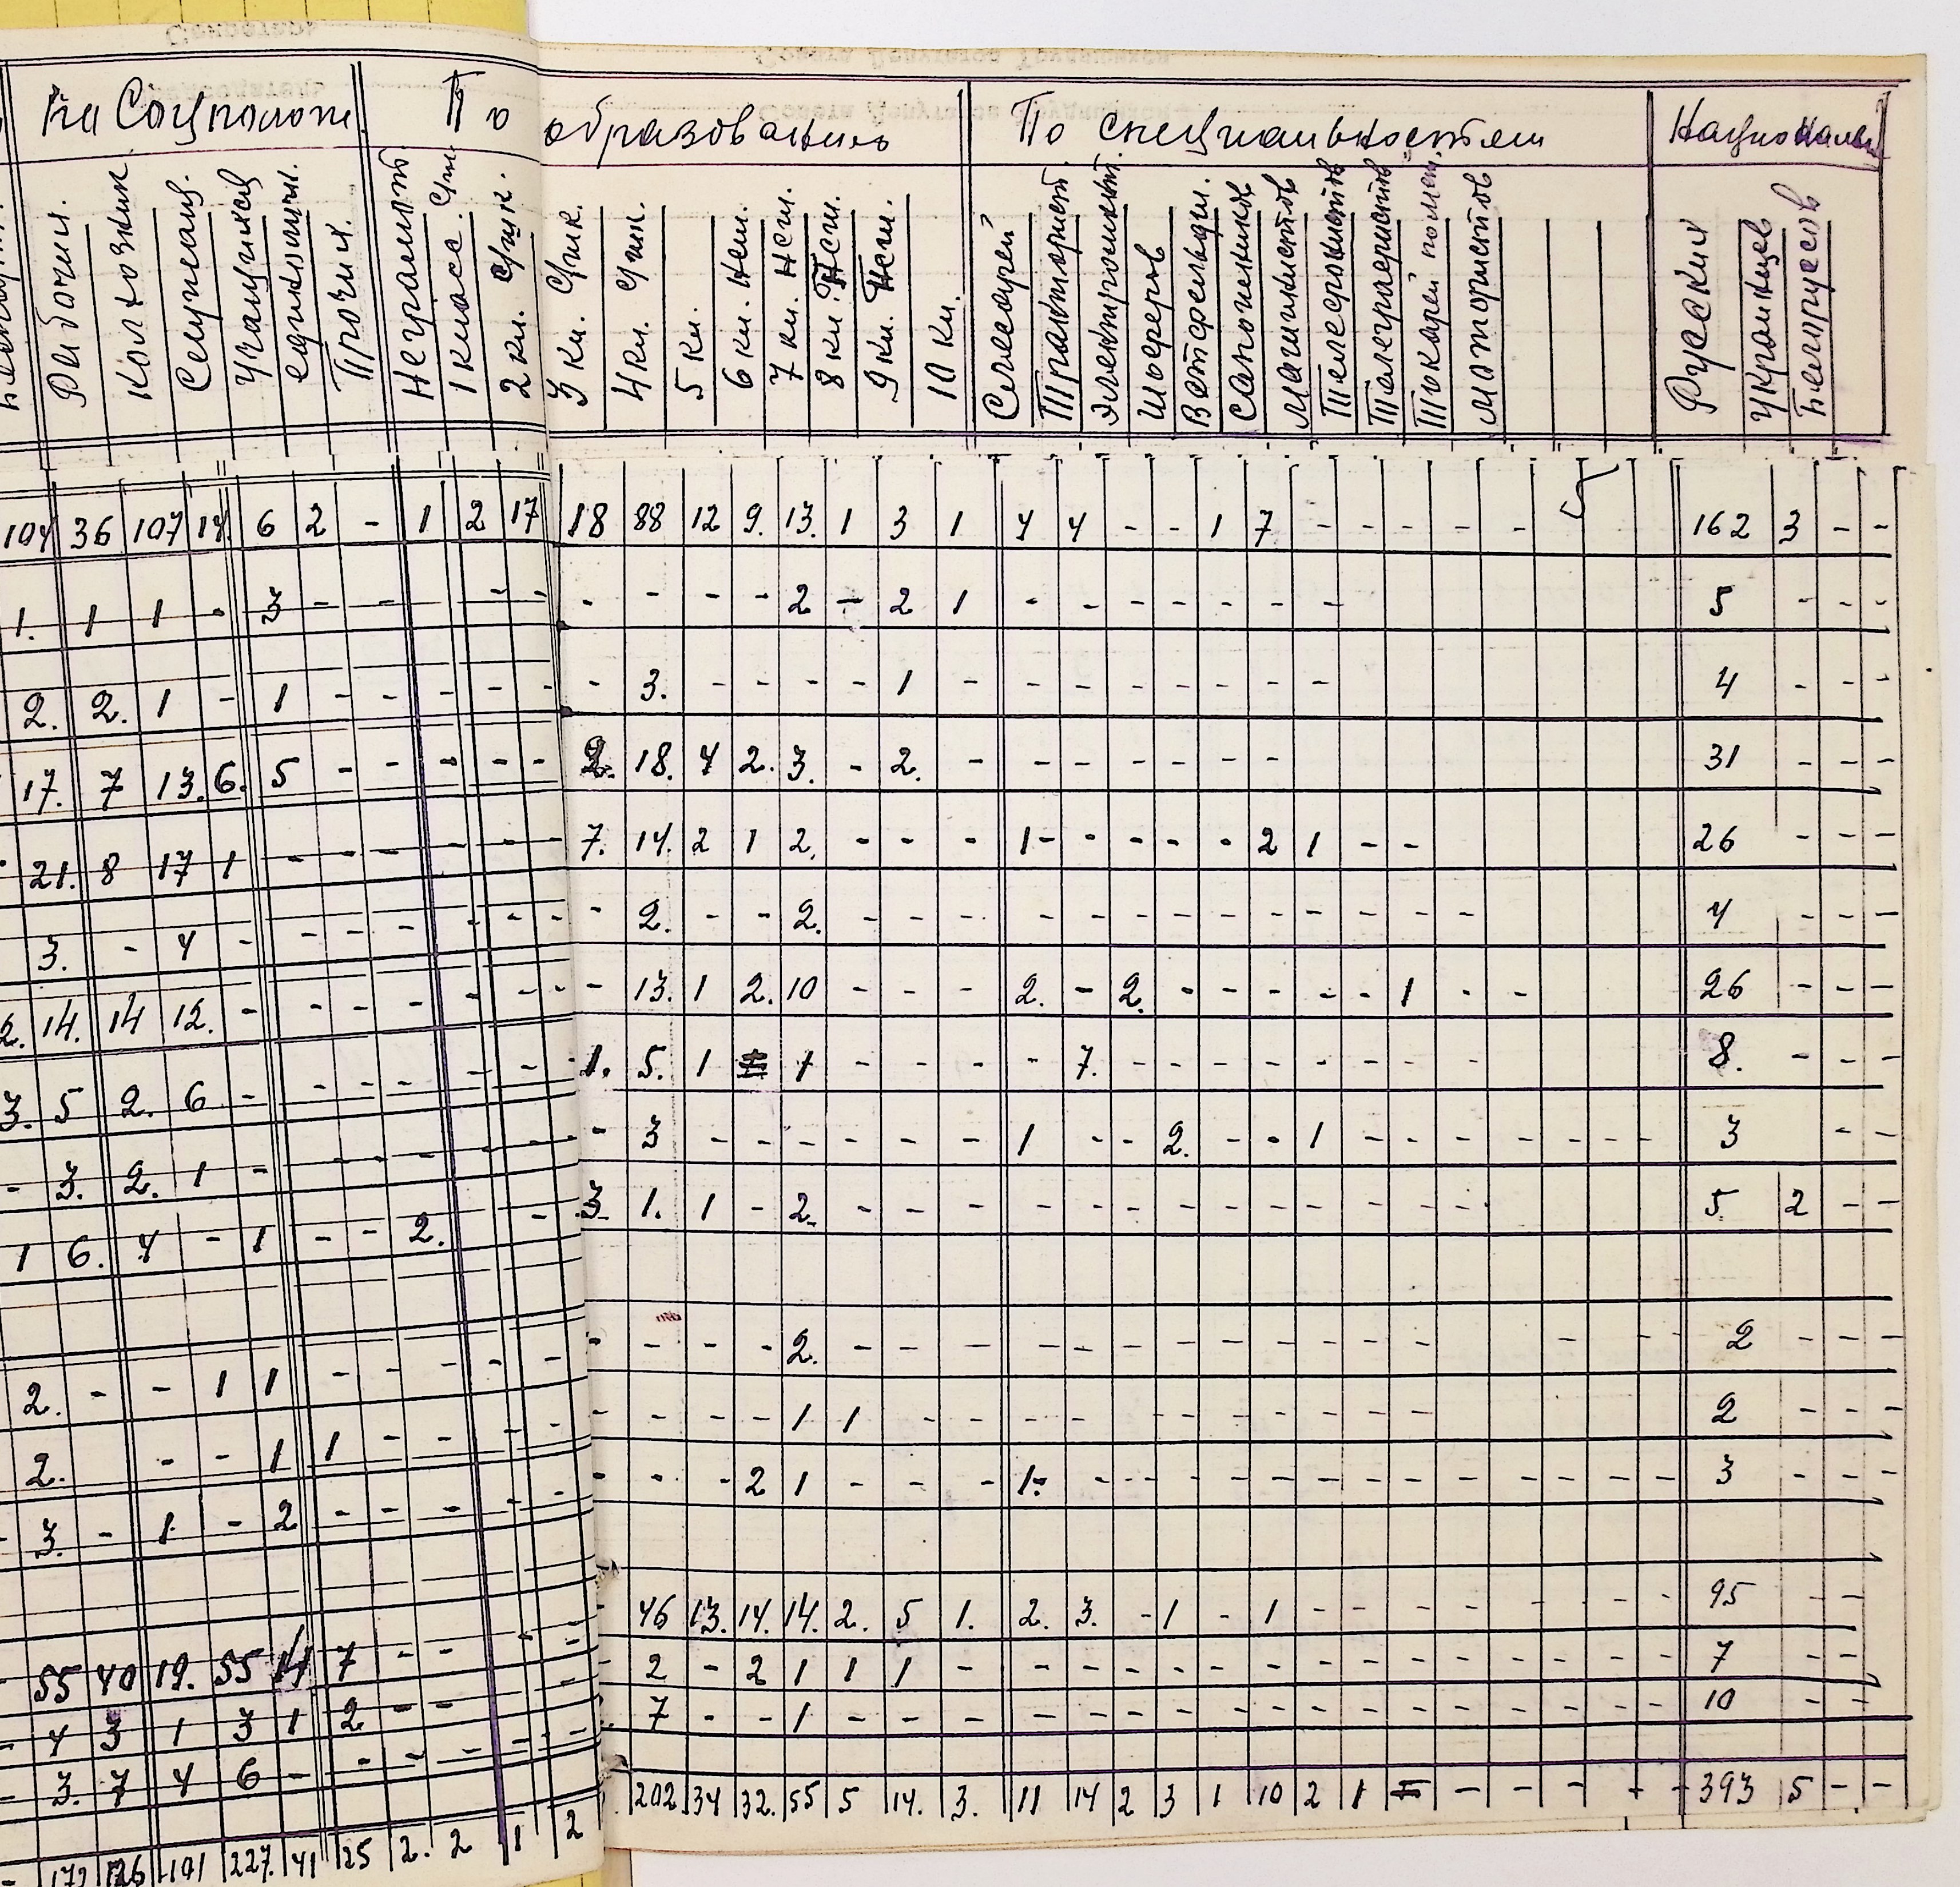 на Соцположен По образованию По специальностям Национальн
Рабочих Колхозник Служащ. Учащихся единоличн. Прочих Неграмот 1 класс. 2 кл. 3 кл. 4 кл. 5 кл. 6 кл. Нсш. 7 кл. Нсш. 8 кл. Нсш. 9 кл. Нсш. 10 кл. Слесарей Трактористов Шоферов Ветфельдш. Сапожников Машинистов Телефонистов Телеграфистов Токарей Мотористов Русских Украинцев Белорусов
104 36 107 14. 6 2 - 1 2 17 18 88 12 9. 13. 1 3 1 4 4 - - 1 7 - - - - - 162 3 - -
1. 1 1 - 3 - - - - - - - - 2 - 2 1 - - - - - - - 5 - - -
2. 2. 1 - 1 - - - - - - 3. - - - - 1 - - - - - - - - 4 - - -
17. 7 13. 6. 5 - - - - - 2. 18. 4 2. 3. - 2. - - - - - - - 31 - - -
21. 8 17 1 - - - - - - 7. 14. 2 1 2. - - - 1 - - - - - 2 1 - - 26 - - -
3. - 4 - - - - - - - - 2. - - 2. - - - - - - - - - - - - - 4 - - -
2. 14. 14 12. - - - - - - - - 13. 1 2. 10 - - - 2. - 2. - - - - - 1 - - 26 - - -
3. 5 2. 6 - - - - - - 1. 5. 1 1 - - - - 7. - - - - - - - - 8. - - -
- 3. 2. 1 - - - - - - - 3 - - - - - - 1 - - 2. - - 1 - - - - - - - 3 - -
1 6. 4 - 1 - - 2. - 3 1. 1 - 2. - - - - - - - - - - - - - 5 2 - -
2. - - 1 1 - - - - - - - - - 2. - - - - - - - - - - - - - - - 2 - - -
2. - - 1 1 - - - - - - - - 1 1 - - - - - - - - - - - 2 - - -
- 3. - 1 - 2 - - - - - - - - 2 1 - - - 1 - - - - - - - - - - - - - 3 - - -
- 55 40 19. 55 14 7 - - - - 46 13. 14. 14. 2. 5 1. 2. 3. - 1 - 1 - - - - - - - 95 - -
- 4 3 1 3 1 2 - - - - 2 - 2 1 1 1 - - - - - - - - - - - - - - 7 - -
- 3. 7 4 6 - - - - - - 7 - - 1 - - - - - - - - - - - - - - - - 10 - -
202 34 32. 55 5 14. 3. 11 14 2 3 1 10 2 1 - - - - - 393 5 - -
- 172 126 101 227. 41 25 2. 2 1 2